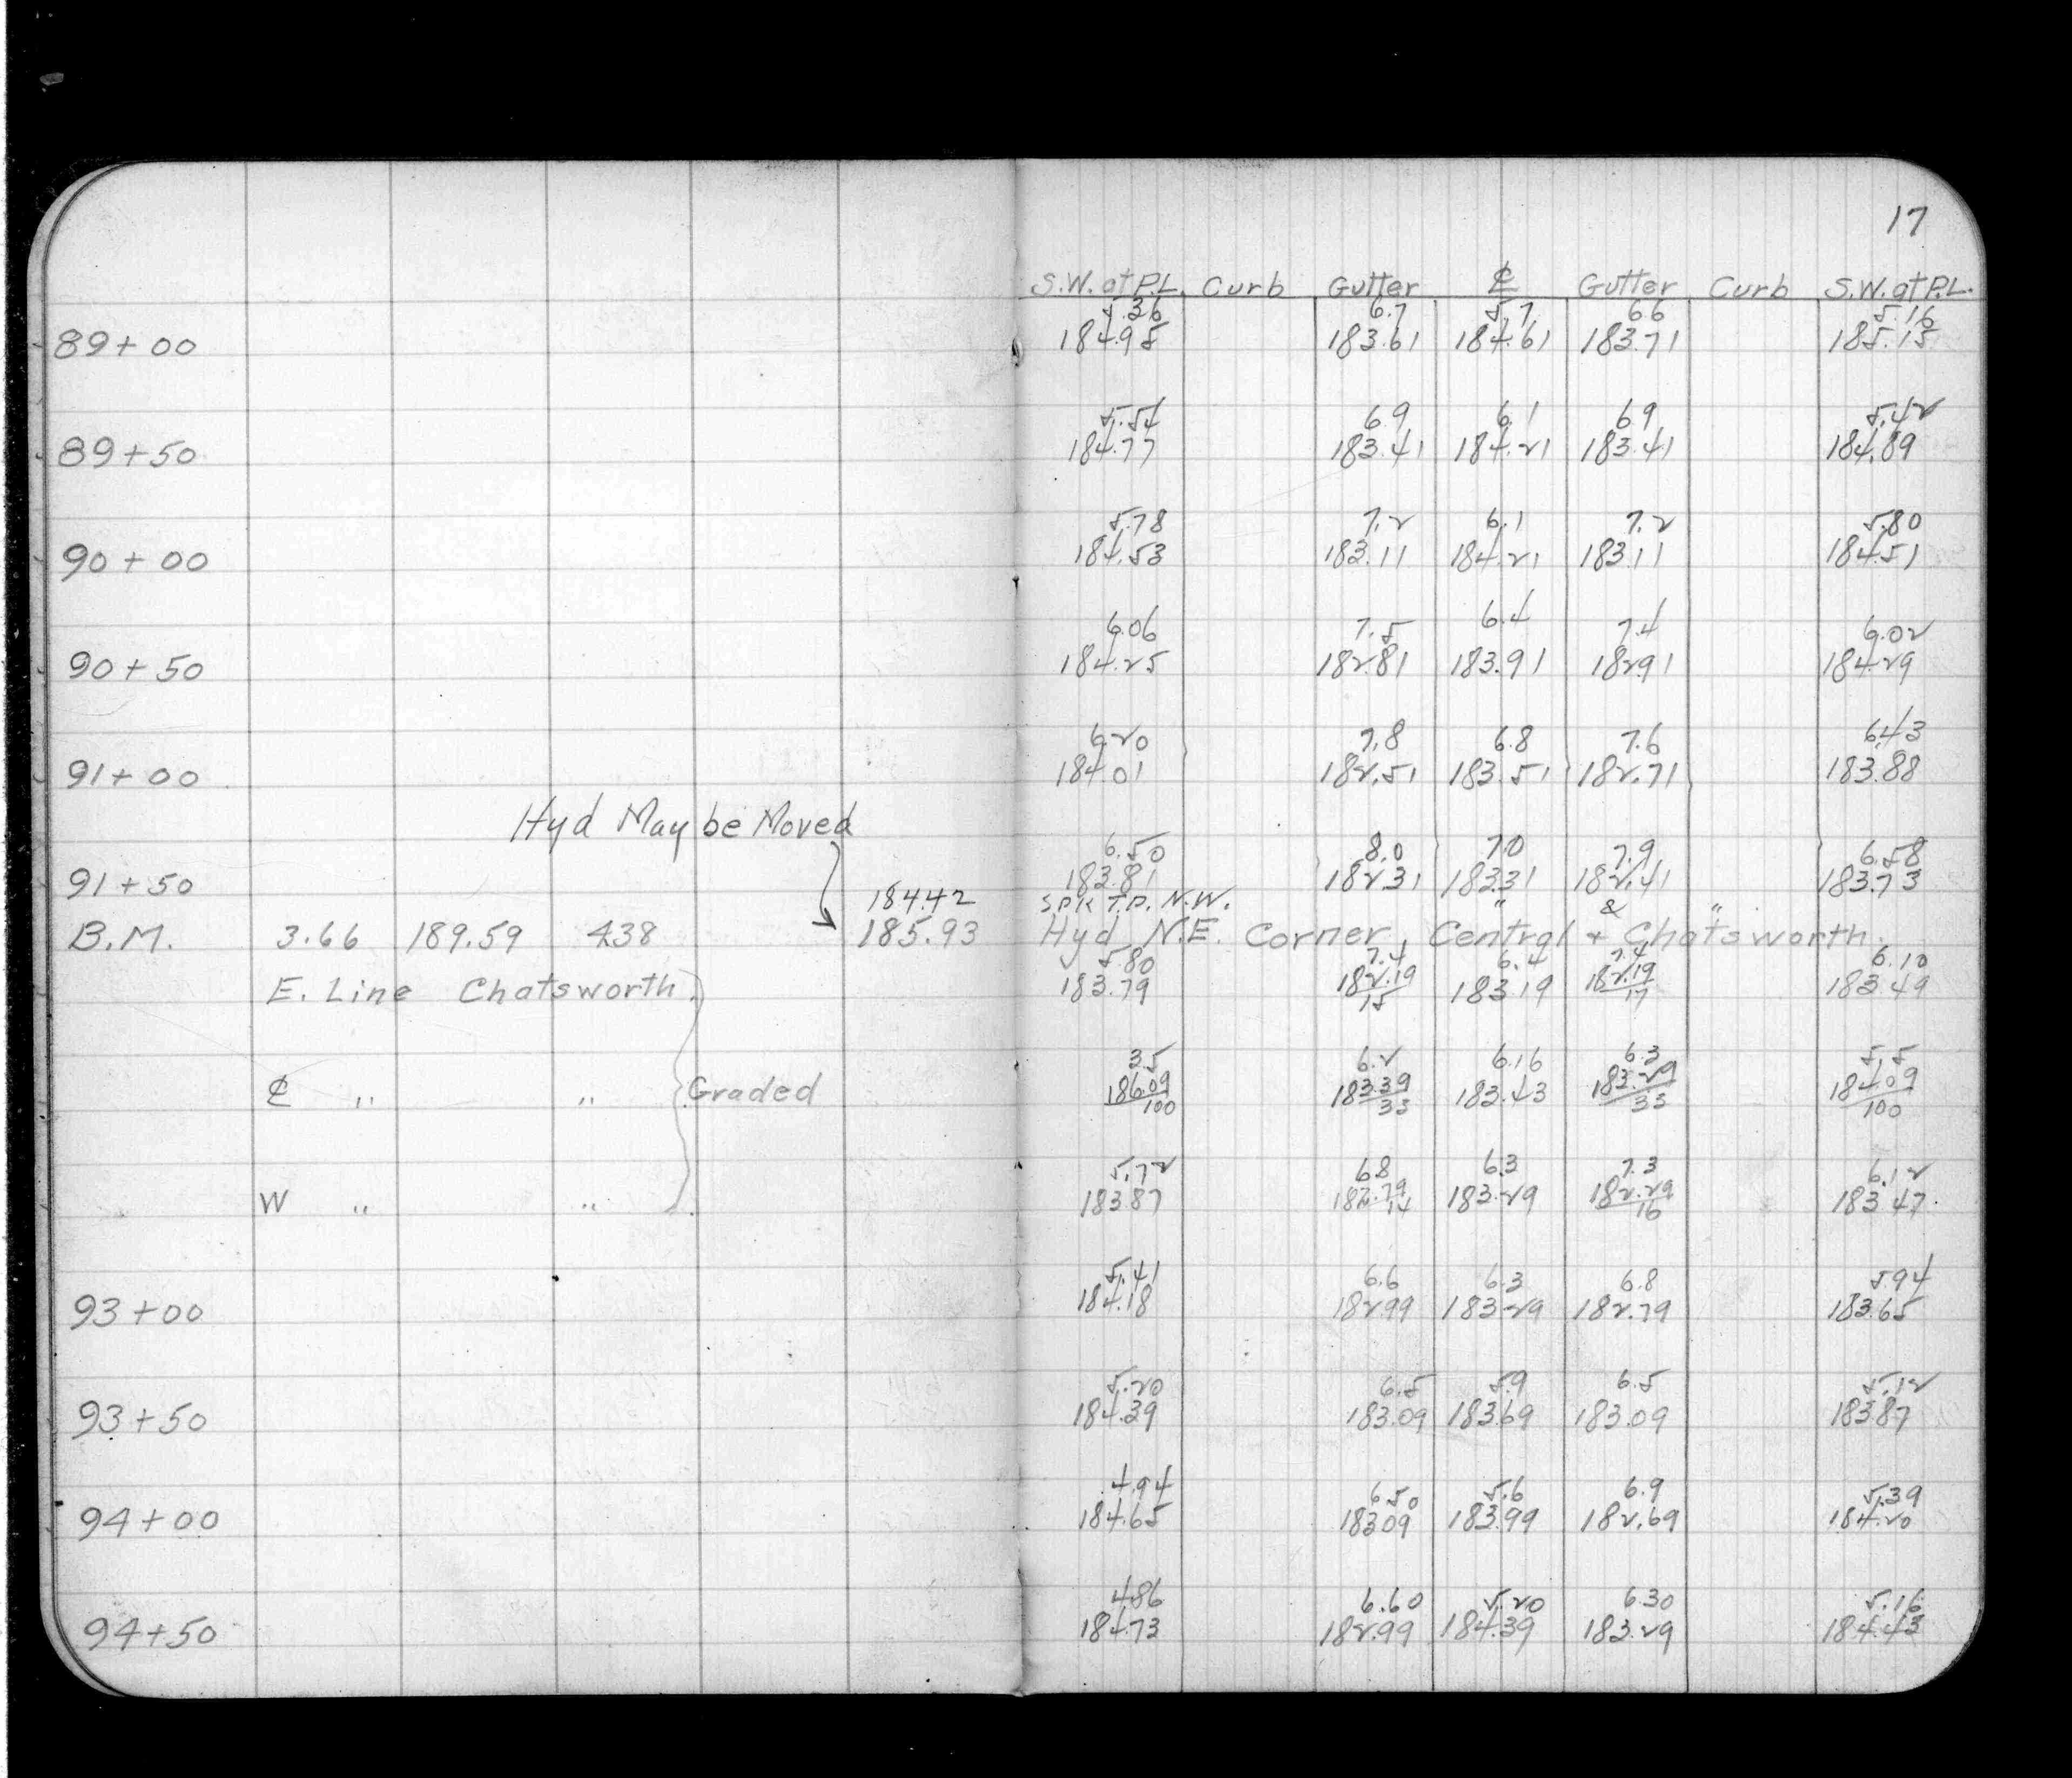 17
S.W. at P.L. Curb Gutter ℄ Gutter Curb S.W. at P.L.
5.36 6.7 5.7 6.6 5.16
89+00 184.95 183.61 184.61 183.71 185.15
5.54 6.9 6.1 6.9 5.42
89+50 184.77 183.41 184.21 183.41 184.89
5.78 7.2 6.1 7.2 5.80
90+00 184.53 183.11 184.21 183.11 184.51
6.06 7.5 6.4 7.4 6.02
90+50 184.25 182.81 183.91 182.91 184.29
6.20 7.8 6.8 7.6 6.43
91+00 184.01 182.51 183.51 182.71 183.88
Hyd May be Moved
6.50 8.0 7.0 7.9 6.58
91+50 183.81 182.31 183.31 182.41 183.73
184.42 SPK T.P. N.W. " & "
B.M. 3.66 189.59 4.38 185.93 Hyd N.E. Corner Central + Chatsworth.
5.80 7.4 6.4 7.4 6.10
E. Line Chatsworth 183.79 182.19/15 183.19 182.19/17 183.49
3.5 6.2 6.16 6.3 5.5
℄ " " Graded 186.09/100 183.39/33 183.43 183.29/33 184.09/100
5.72 6.8 6.3 7.3 6.12
W " " 183.87 182.79/14 183.29 182.29/16 183.47
5.41 6.6 6.3 6.8 5.94
93+00 184.18 182.99 183.29 182.79 183.65
5.20 6.5 5.9 6.5 5.12
93+50 184.39 183.09 183.69 183.09 183.87
4.94 6.50 5.6 6.9 5.39
94+00 184.65 183.09 183.99 182.69 184.20
4.86 6.60 5.20 6.30 5.16
94+50 184.73 182.99 184.39 183.29 184.43